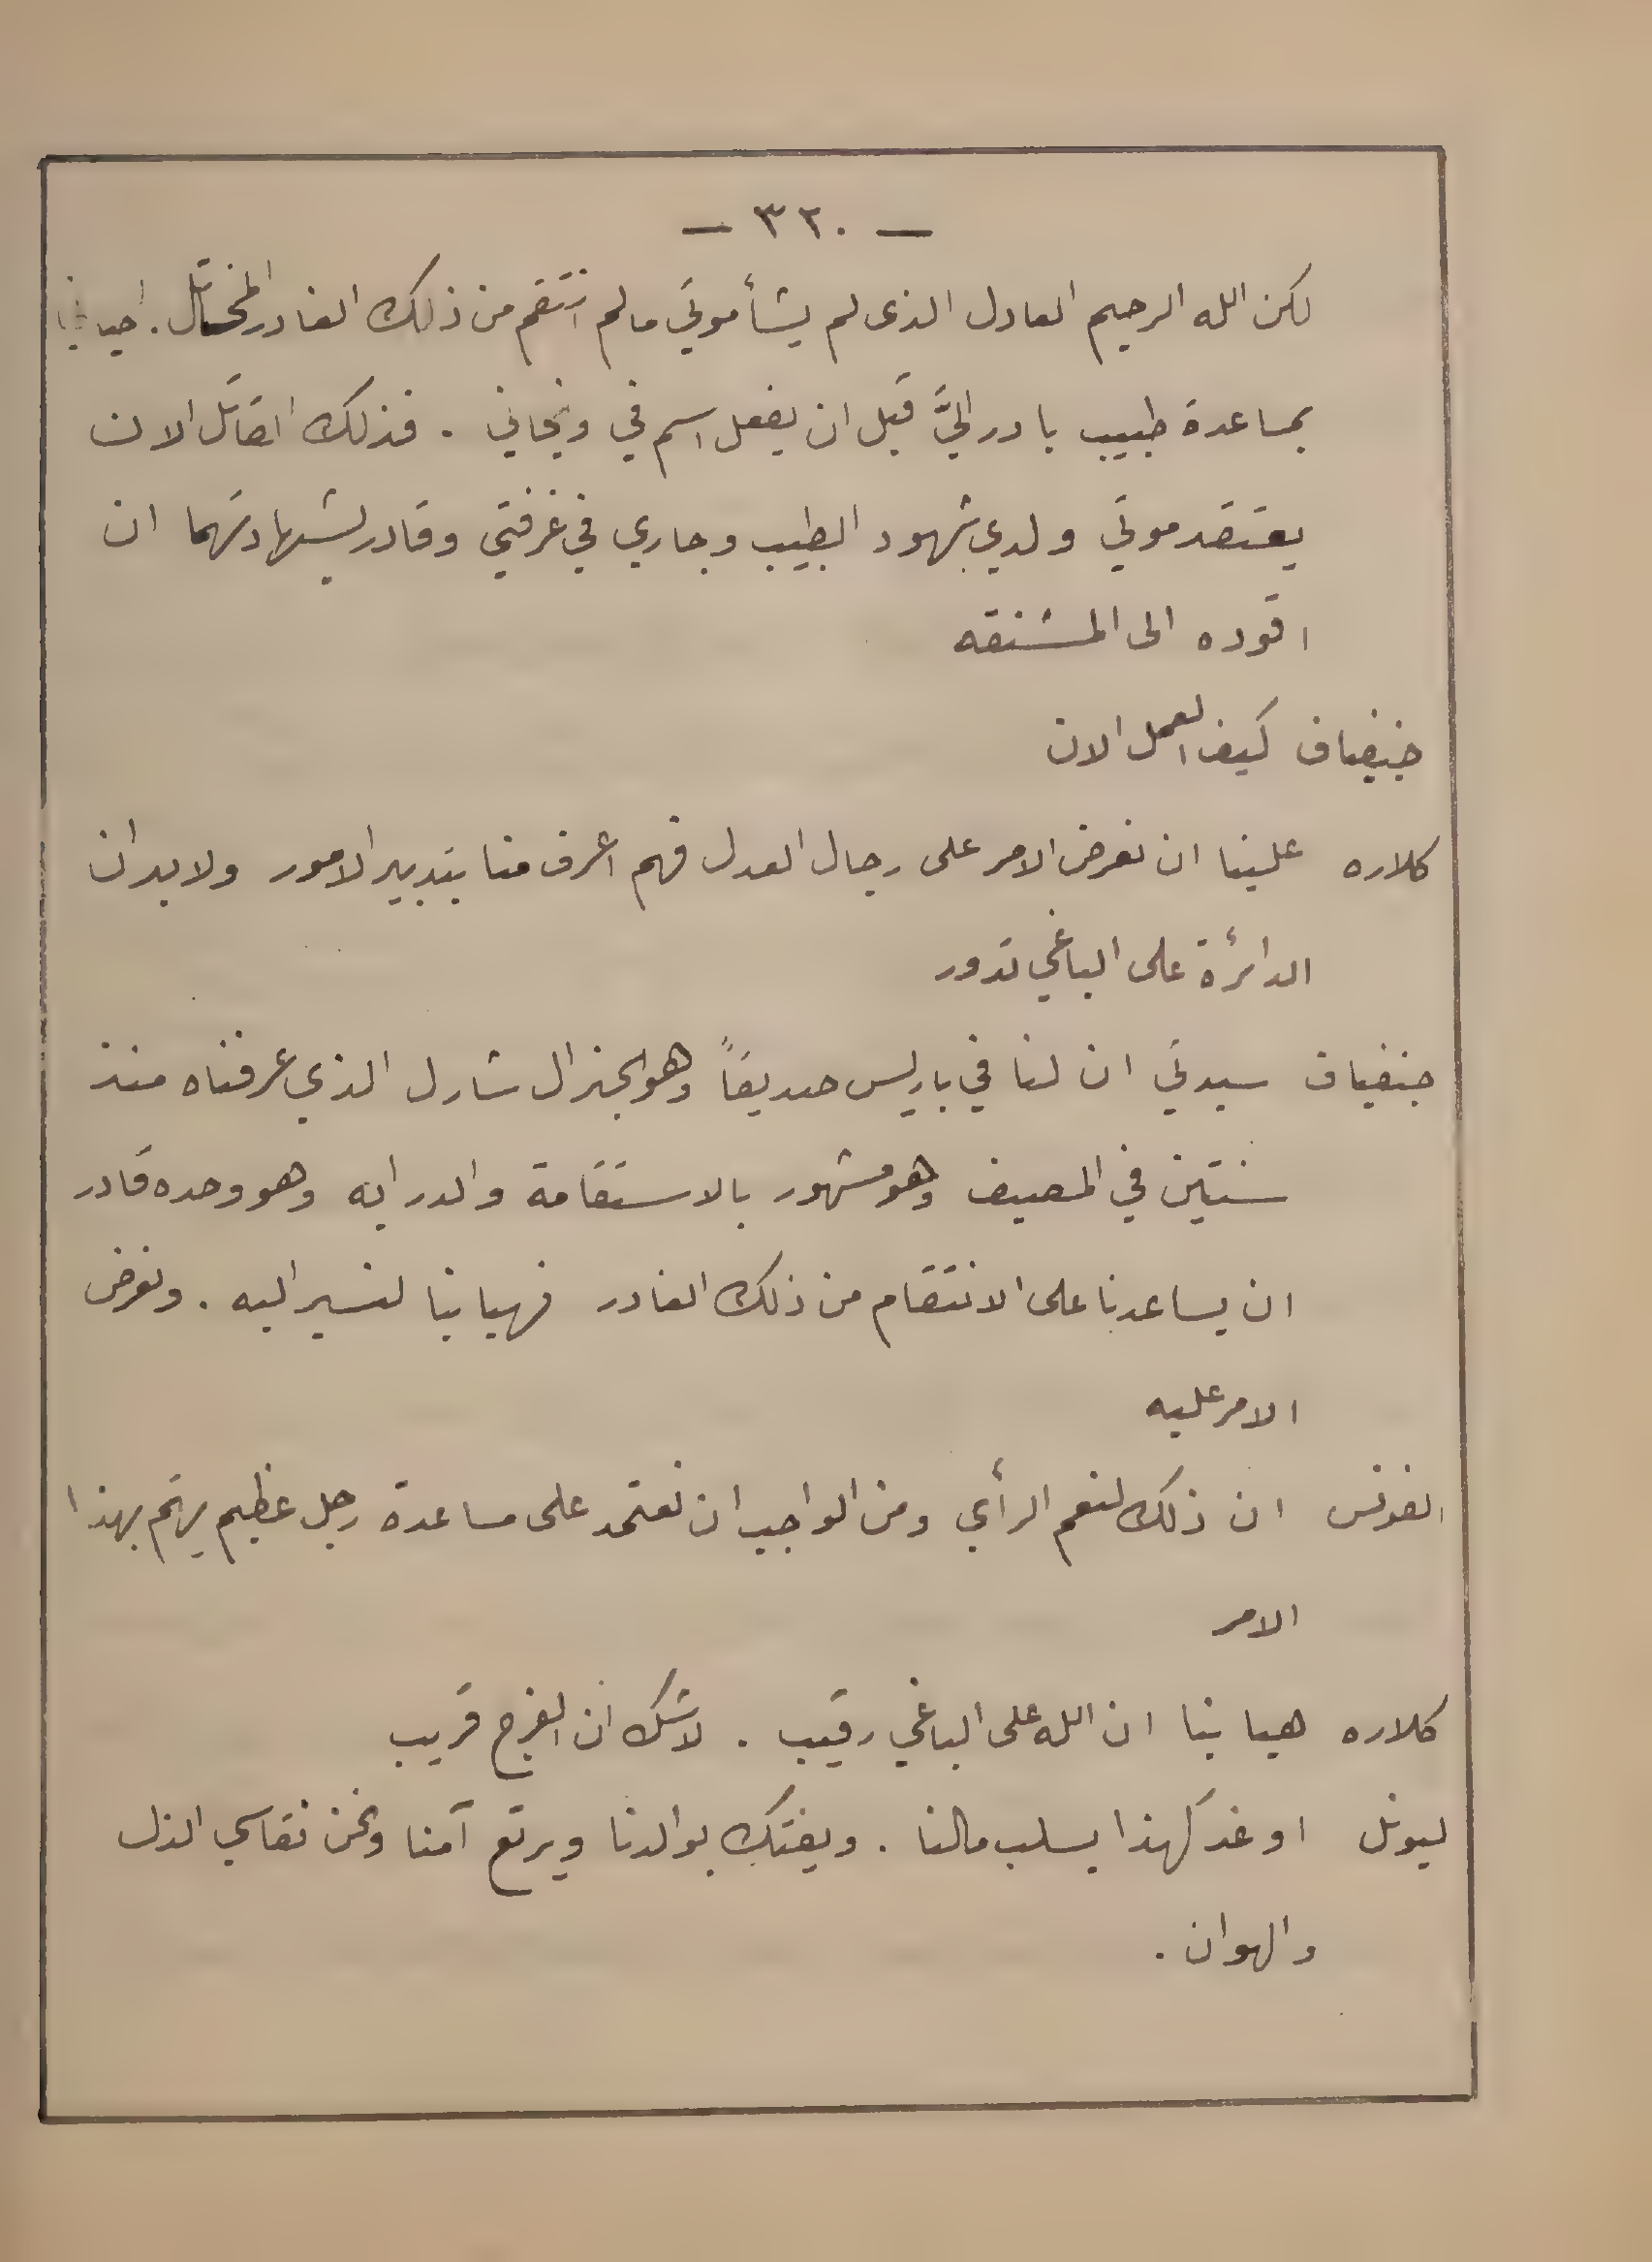 — ٣٢٠ —
لكن الله الرحيم العادل الذى لم يشأ موتي ما لم انتقم من ذلك الغادر المختال . احياني
بمساعدة طبيب بادر اليَّ قبل ان يفعل اسم في ونجاني . فذلك القاتل الان
يعتقد موتي ولدي شهود الطبيب وجاري في غرفتي وقادر بشهادتهما ان
اقوده الى المشنقه
جنفياف كيف العمل الان
كلاره علينا ان نعرض الامر على رجال العدل فهم اعرف منا بتدبير الامور ولا بد ان
الدائرة على الباغي تدور
جنفياف سيدتي ان لنا في باريس صديقاً وهو الجنرال شارل الذي عرفناه منذ
سنتين في المصيف وهو مشهور بالاستقامة والدرايه وهو وحده قادر
ان يساعدنا على الانتقام من ذلك الغادر فهيا بنا لنسير اليه . ونعرض
الامر عليه
الفونس ان ذلك لنعم الرأي ومن الواجب ان نعتمد على مساعدة رجل عظيم يهتم بهذا
الامر
كلاره هيا بنا ان الله على الباغي رقيب . لا شك ان الفرج قريب
ليونل اوغد كهذا يسلب مالنا . ويفتك بوالدنا ويرتع آمنا ونحن نقاسي الذل
والهوان .